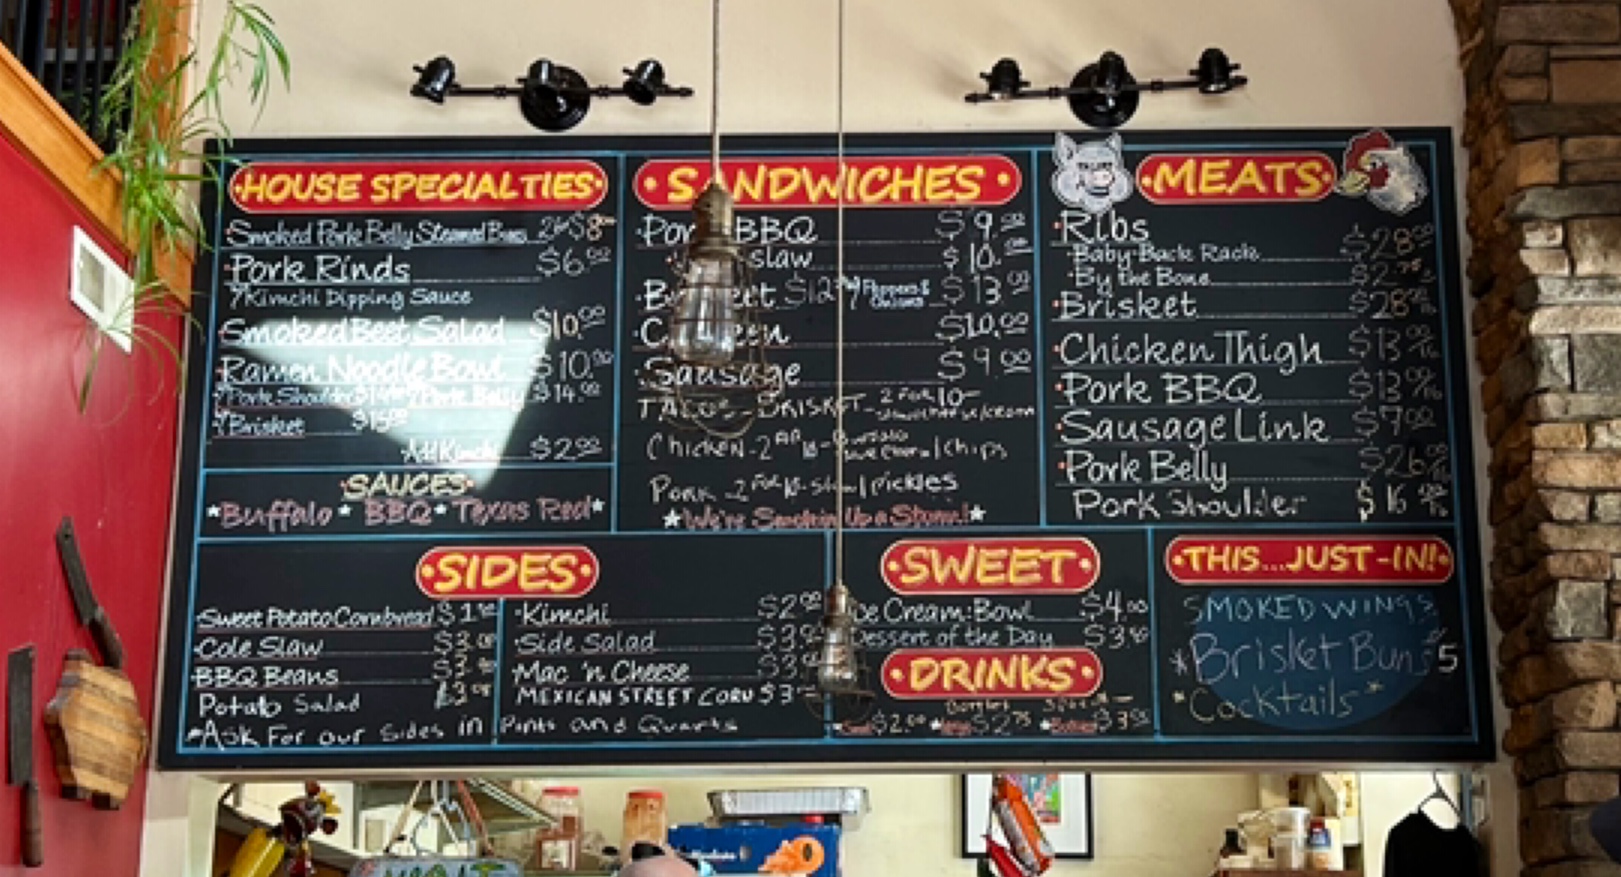 HOUSE SPECIALTIES
Smoked Pork Belly Steamed Buns 2 for $8
Pork Rinds $6.00
Kimchi Dipping Sauce
Smoked Beet Salad $10.00
Ramen Noodle Bowl $10.00
Pork Shoulder Pork Belly $14.00
Brisket $15.00
Add Kimchi $2.00
SAUCES
*Buffalo * BBQ * Texas Red*
SANDWICHES
BBQ $9.00
slaw $10.00
$12 Peppers & Onions $13.00
$10.00
Sausage $9.00
TACOS - BRISKET - 2 FOR 10-
Chicken - 2 FOR 10- / Chips
Pork - 2 FOR 10- / pickles
*We're Smokin' Up a Storm!*
MEATS
Ribs
Baby Back Rack $28.00
By the Bone $2.75
Brisket $28
Chicken Thigh $13
Pork BBQ $13
Sausage Link $7.00
Pork Belly $26
Pork Shoulder $16
SIDES
Sweet Potato Cornbread $1
Cole Slaw $3.00
BBQ Beans $3
Potato Salad $3
Kimchi $2.00
Side Salad $3
Mac 'n Cheese $3
MEXICAN STREET CORN $3
*ASK For our Sides in Pints and Quarts
SWEET
Ice Cream: Bowl $4.00
Dessert of the Day $3
DRINKS
$2.00 $2.75 $3
THIS...JUST-IN!
SMOKED WINGS
*Brisket Buns 5
*Cocktails*